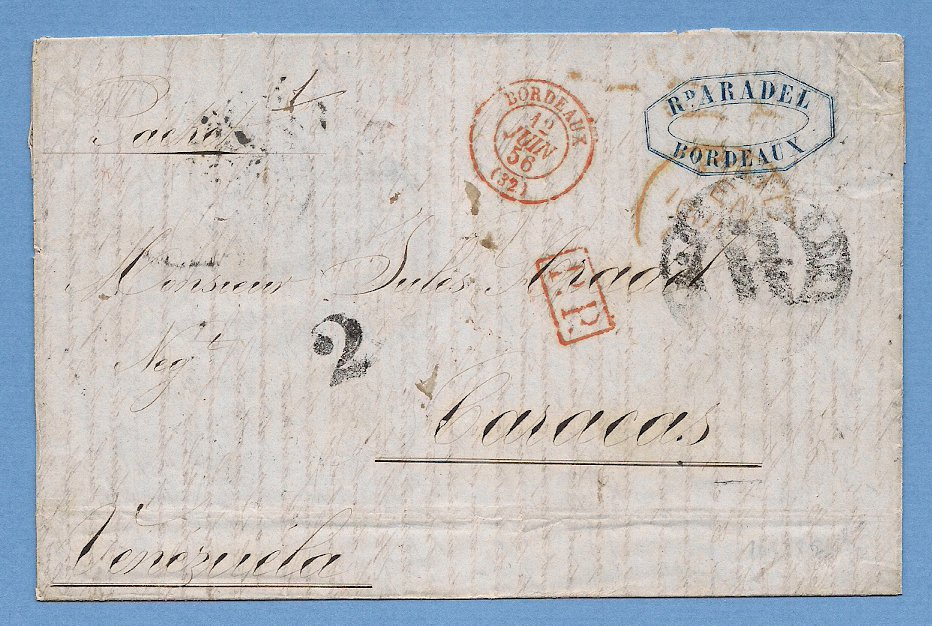 BORDEAUX
12
JUIN
56
(32)
RD ARADEL
BORDEAUX
P.P.
Monsieur Jules Aradel
Negt
2
Caracas
Venezuela